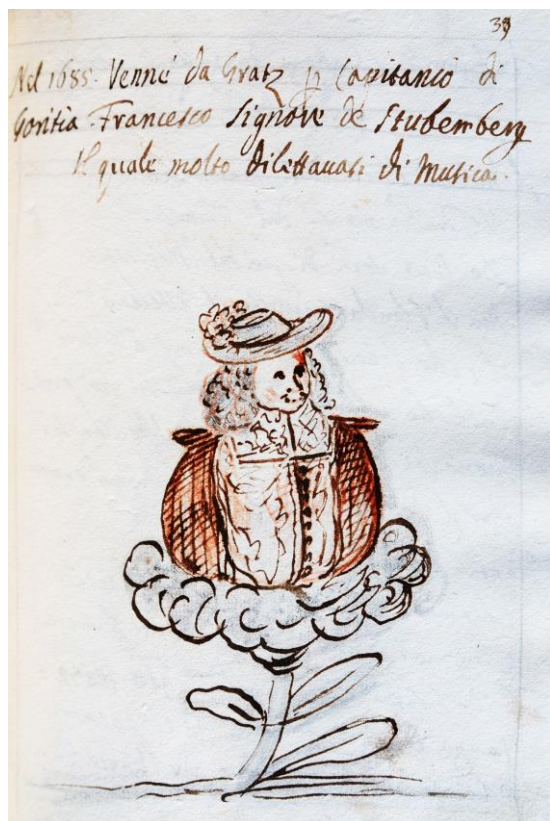 39
Nel 1688. Venne da Gratz p Capitanio di
Goritia Francesco Signore de Stubemberg
Il quale molto dilettavasi di Musica.